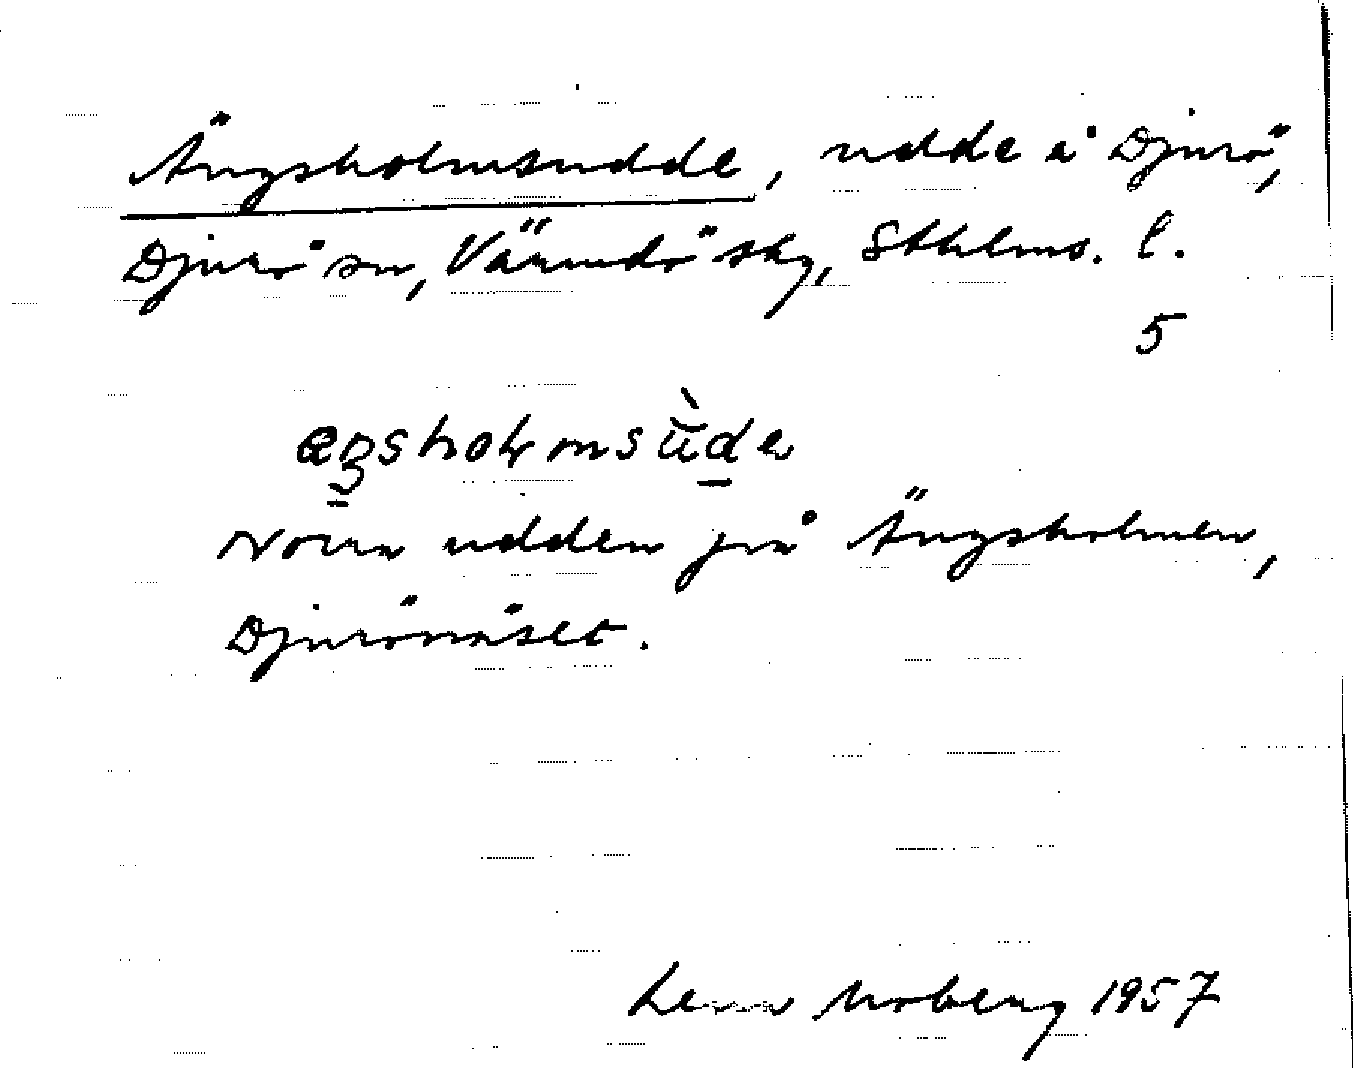 Ängsholmsudde, udde å Djurö,
Djurö sn, Värmdö sky, Sthlms. l.
5
Norra udden på Ängsholmen,
Djurönäset.
Lena Moberg 1957